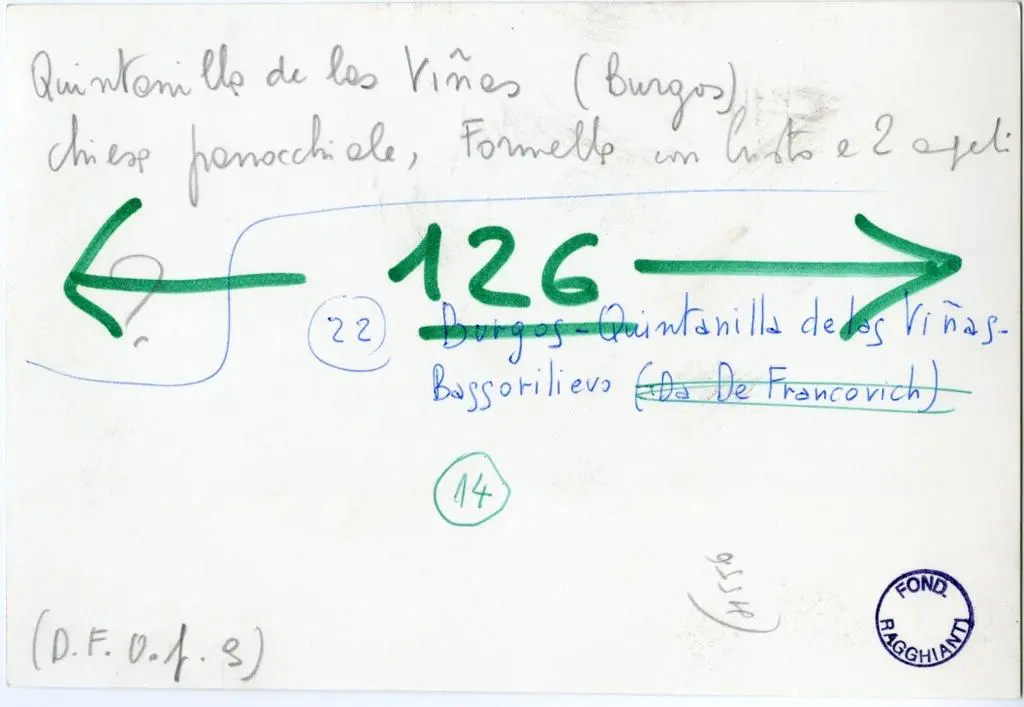 Quintanilla de las Viñas (Burgos)
chiesa parrocchiale, Formella con Cristo e 2 angeli
126
?
22
Burgos-Quintanilla de las Viñas-
Bassorilievo (Da De Francovich)
14
(D.F. O.f. 9)
FOND.
RAGGHIANTI